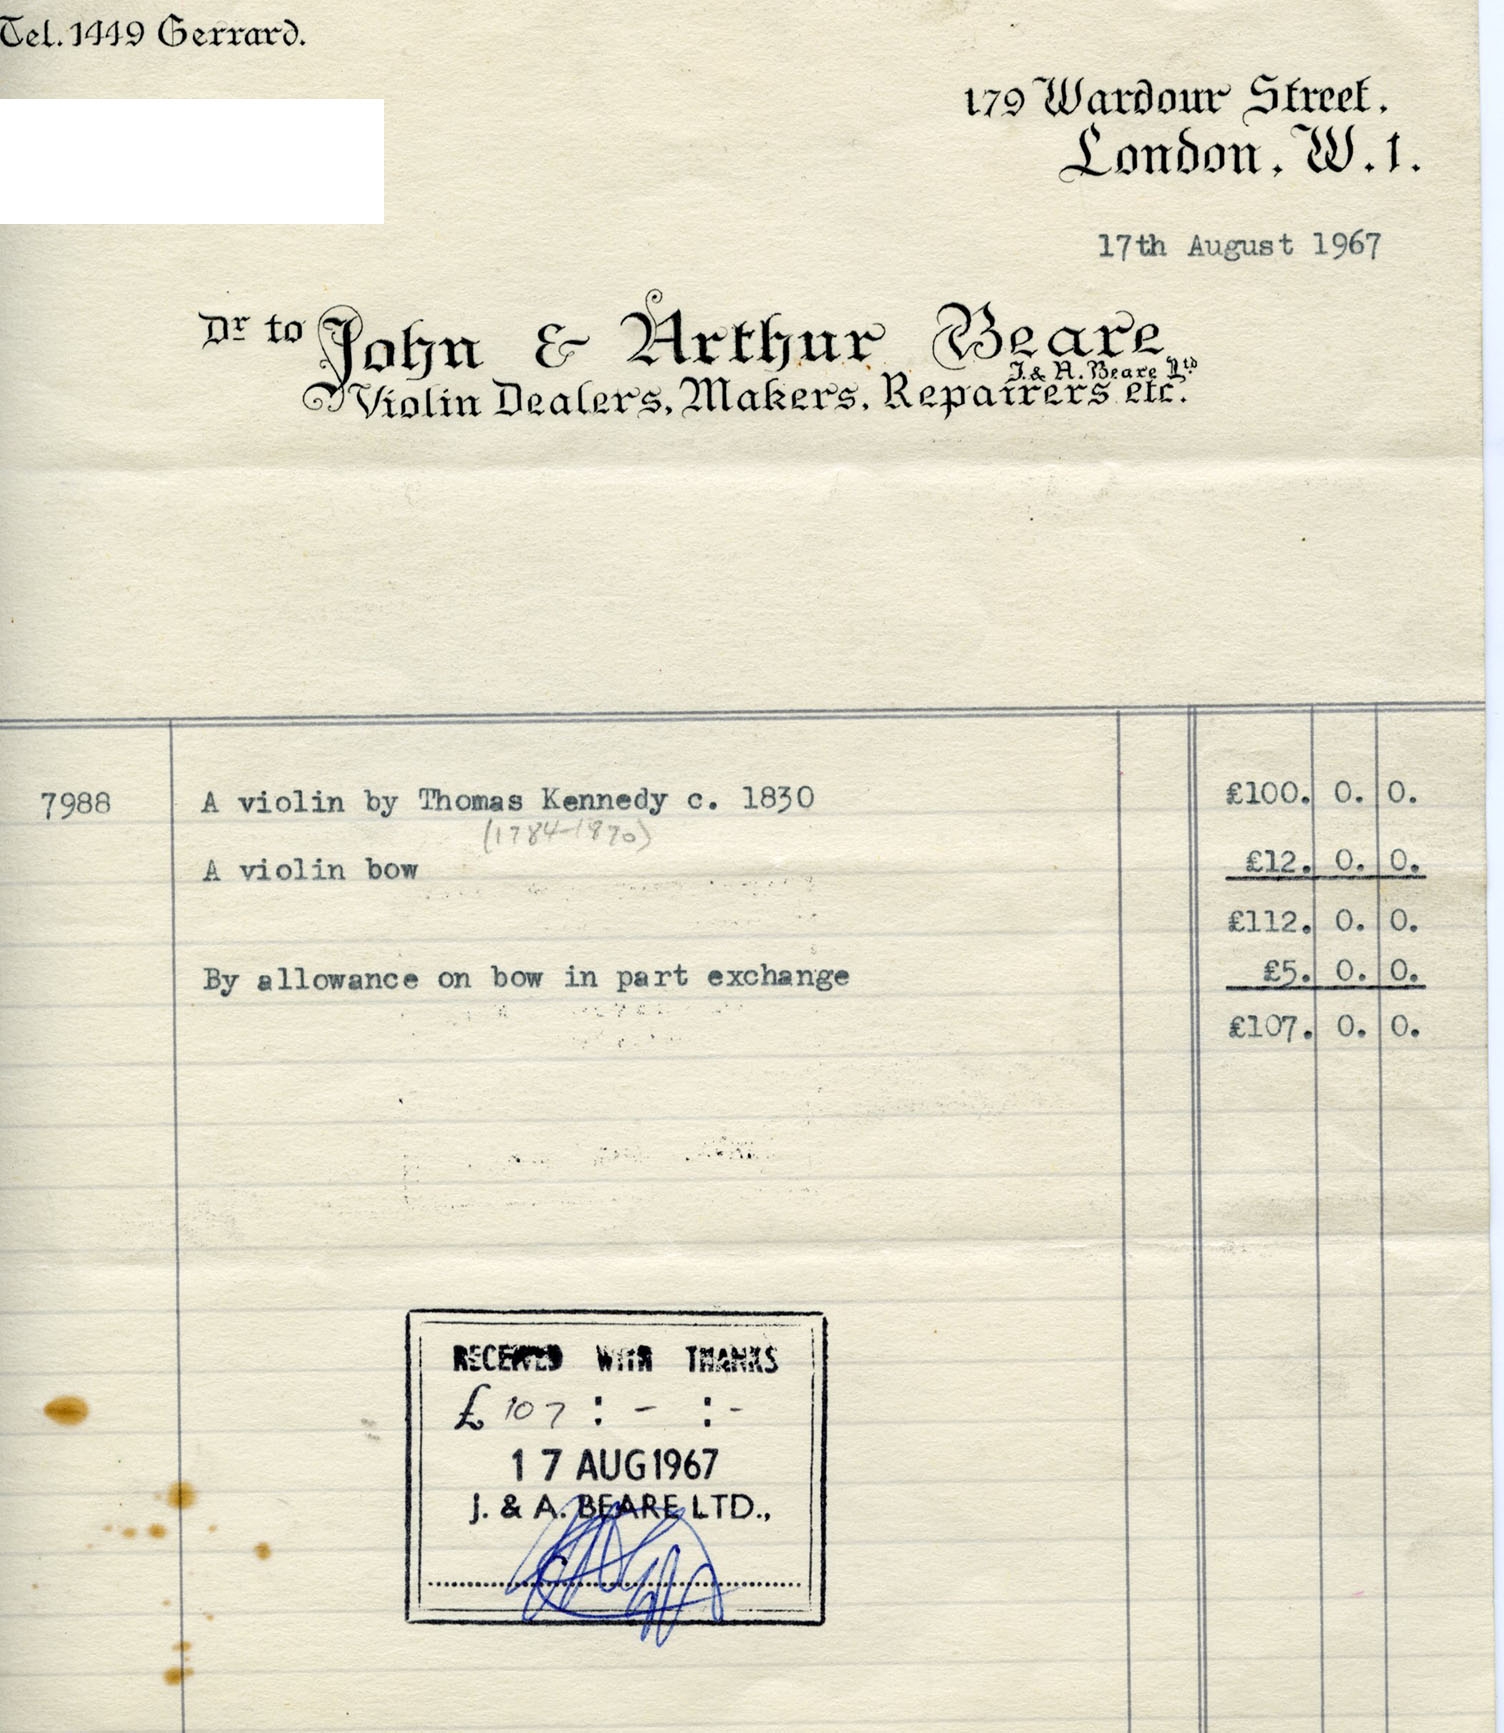 Tel. 1449 Gerrard.
179 Wardour Street,
London, W.1.
17th August 1967
Dr to John & Arthur Beare
J. & A. Beare Ltd
Violin Dealers, Makers, Repairers etc.
7988 A violin by Thomas Kennedy c. 1830 £100. 0. 0.
(1784-1870)
A violin bow £12. 0. 0.
£112. 0. 0.
By allowance on bow in part exchange £5. 0. 0.
£107. 0. 0.
RECEIVED WITH THANKS
£ 107 : - : -
17 AUG 1967
J. & A. BEARE LTD.,